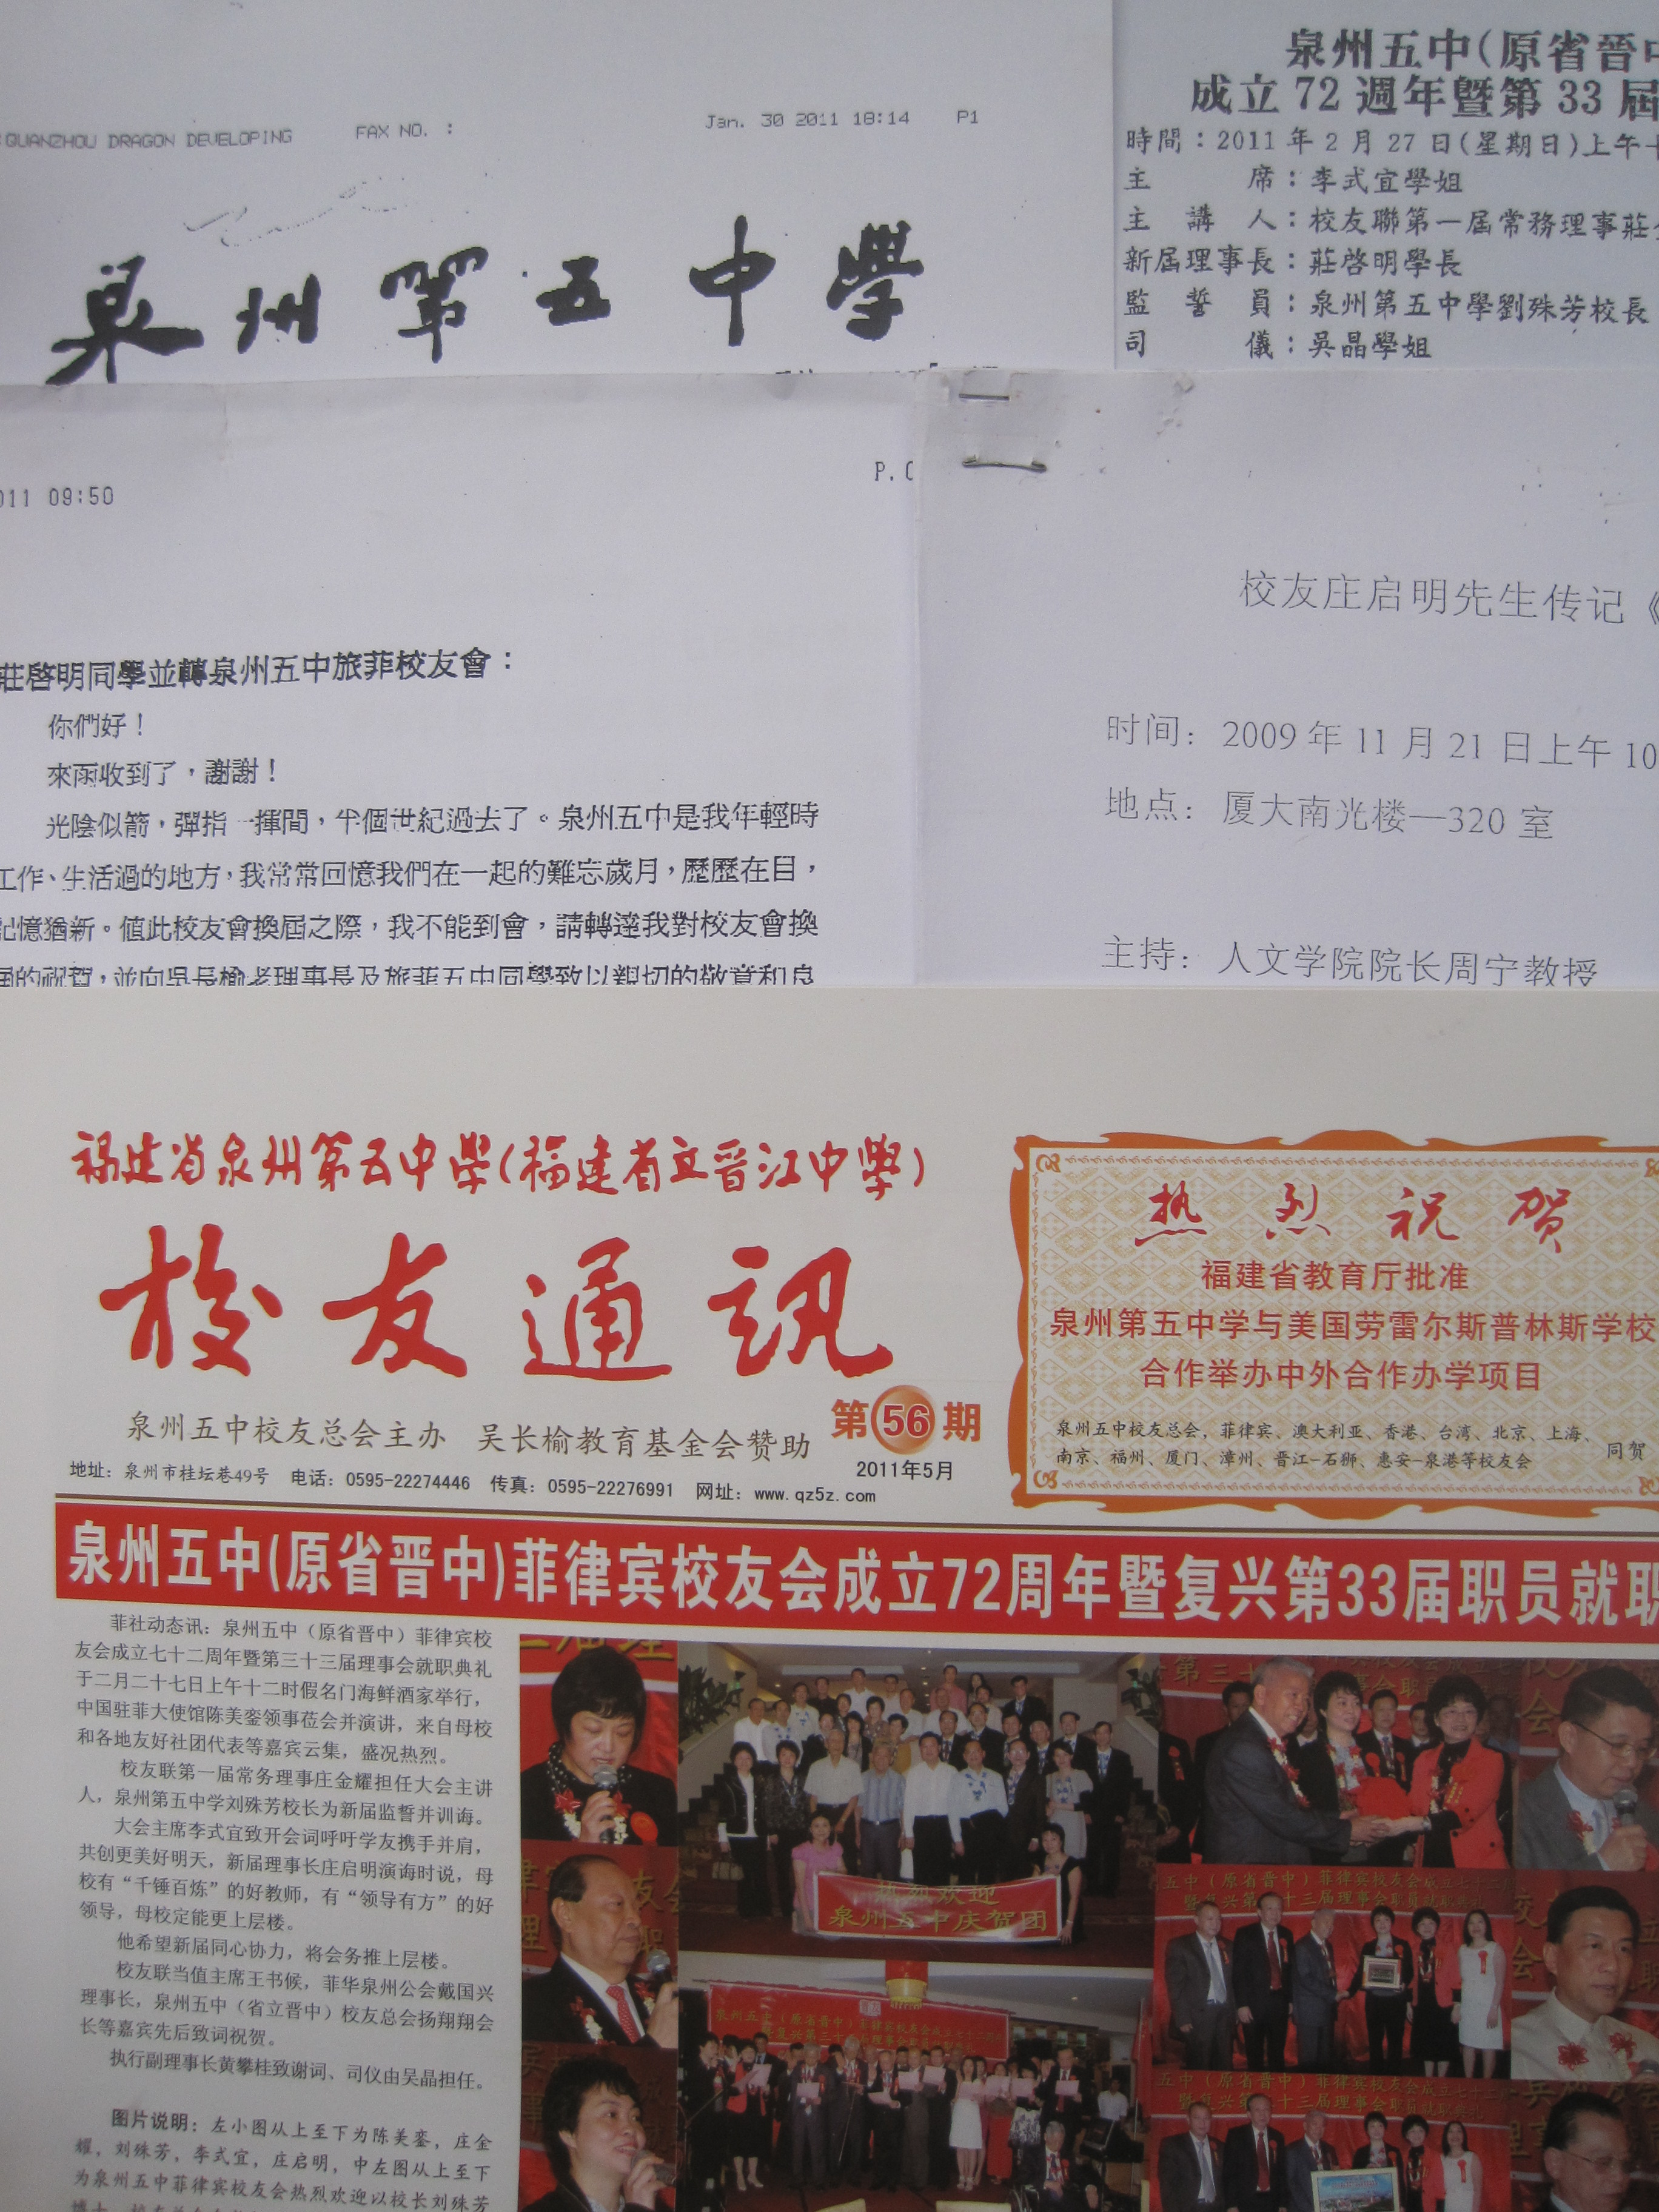 QUANZHOU DRAGON DEVELOPING FAX NO. : Jan. 30 2011 18:14 P1
泉州第五中學
泉州五中(原省晉中
成立 72 週年暨第 33 屆
時間：2011 年 2 月 27 日(星期日)上午十
主席：李式宜學姐
主講人：校友聯第一屆常務理事莊
新屆理事長：莊啓明學長
監誓員：泉州第五中學劉殊芳校長
司儀：吳晶學姐
011 09:50
P.
莊啓明同學並轉泉州五中旅菲校友會：
你們好！
來函收到了，謝謝！
光陰似箭，彈指一揮間，半個世紀過去了。泉州五中是我年輕時
工作、生活過的地方，我常常回憶我們在一起的難忘歲月，歷歷在目，
記憶猶新。值此校友會換屆之際，我不能到會，請轉達我對校友會換
屆的祝賀，並向吳長榆老理事長及旅菲五中同學致以親切的敬意和良
校友庄启明先生传记《
时间：2009 年 11 月 21 日上午 10
地点：厦大南光楼—320 室
主持：人文学院院长周宁教授
福建省泉州第五中學(福建省立晋江中學)
校友通訊
泉州五中校友总会主办 吴长榆教育基金会赞助
第56期
2011年5月
地址：泉州市桂坛巷49号 电话：0595-22274446 传真：0595-22276991 网址：www.qz5z.com
热烈祝贺
福建省教育厅批准
泉州第五中学与美国劳雷尔斯普林斯学校
合作举办中外合作办学项目
泉州五中校友总会，菲律宾、澳大利亚、香港、台湾、北京、上海、
南京、福州、厦门、漳州、晋江-石狮、惠安-泉港等校友会
同贺
泉州五中(原省晋中)菲律宾校友会成立72周年暨复兴第33届职员就职
菲社动态讯：泉州五中（原省晋中）菲律宾校
友会成立七十二周年暨第三十三届理事会就职典礼
于二月二十七日上午十二时假名门海鲜酒家举行，
中国驻菲大使馆陈美銮领事莅会并演讲，来自母校
和各地友好社团代表等嘉宾云集，盛况热烈。
校友联第一届常务理事庄金耀担任大会主讲
人，泉州第五中学刘殊芳校长为新届监誓并训诲。
大会主席李式宜致开会词呼吁学友携手并肩，
共创更美好明天，新届理事长庄启明演诲时说，母
校有“千锤百炼”的好教师，有“领导有方”的好
领导，母校定能更上层楼。
他希望新届同心协力，将会务推上层楼。
校友联当值主席王书候，菲华泉州公会戴国兴
理事长，泉州五中（省立晋中）校友总会扬翔翔会
长等嘉宾先后致词祝贺。
执行副理事长黄攀桂致谢词、司仪由吴晶担任。
图片说明：左小图从上至下为陈美銮，庄金
耀，刘殊芳，李式宜，庄启明，中左图从上至下
为泉州五中菲律宾校友会热烈欢迎以校长刘殊芳
热烈欢迎
泉州五中庆贺团
五中（原省晋中）菲律宾校友会成立七十二
暨复兴第三十三届理事会职员就职典礼